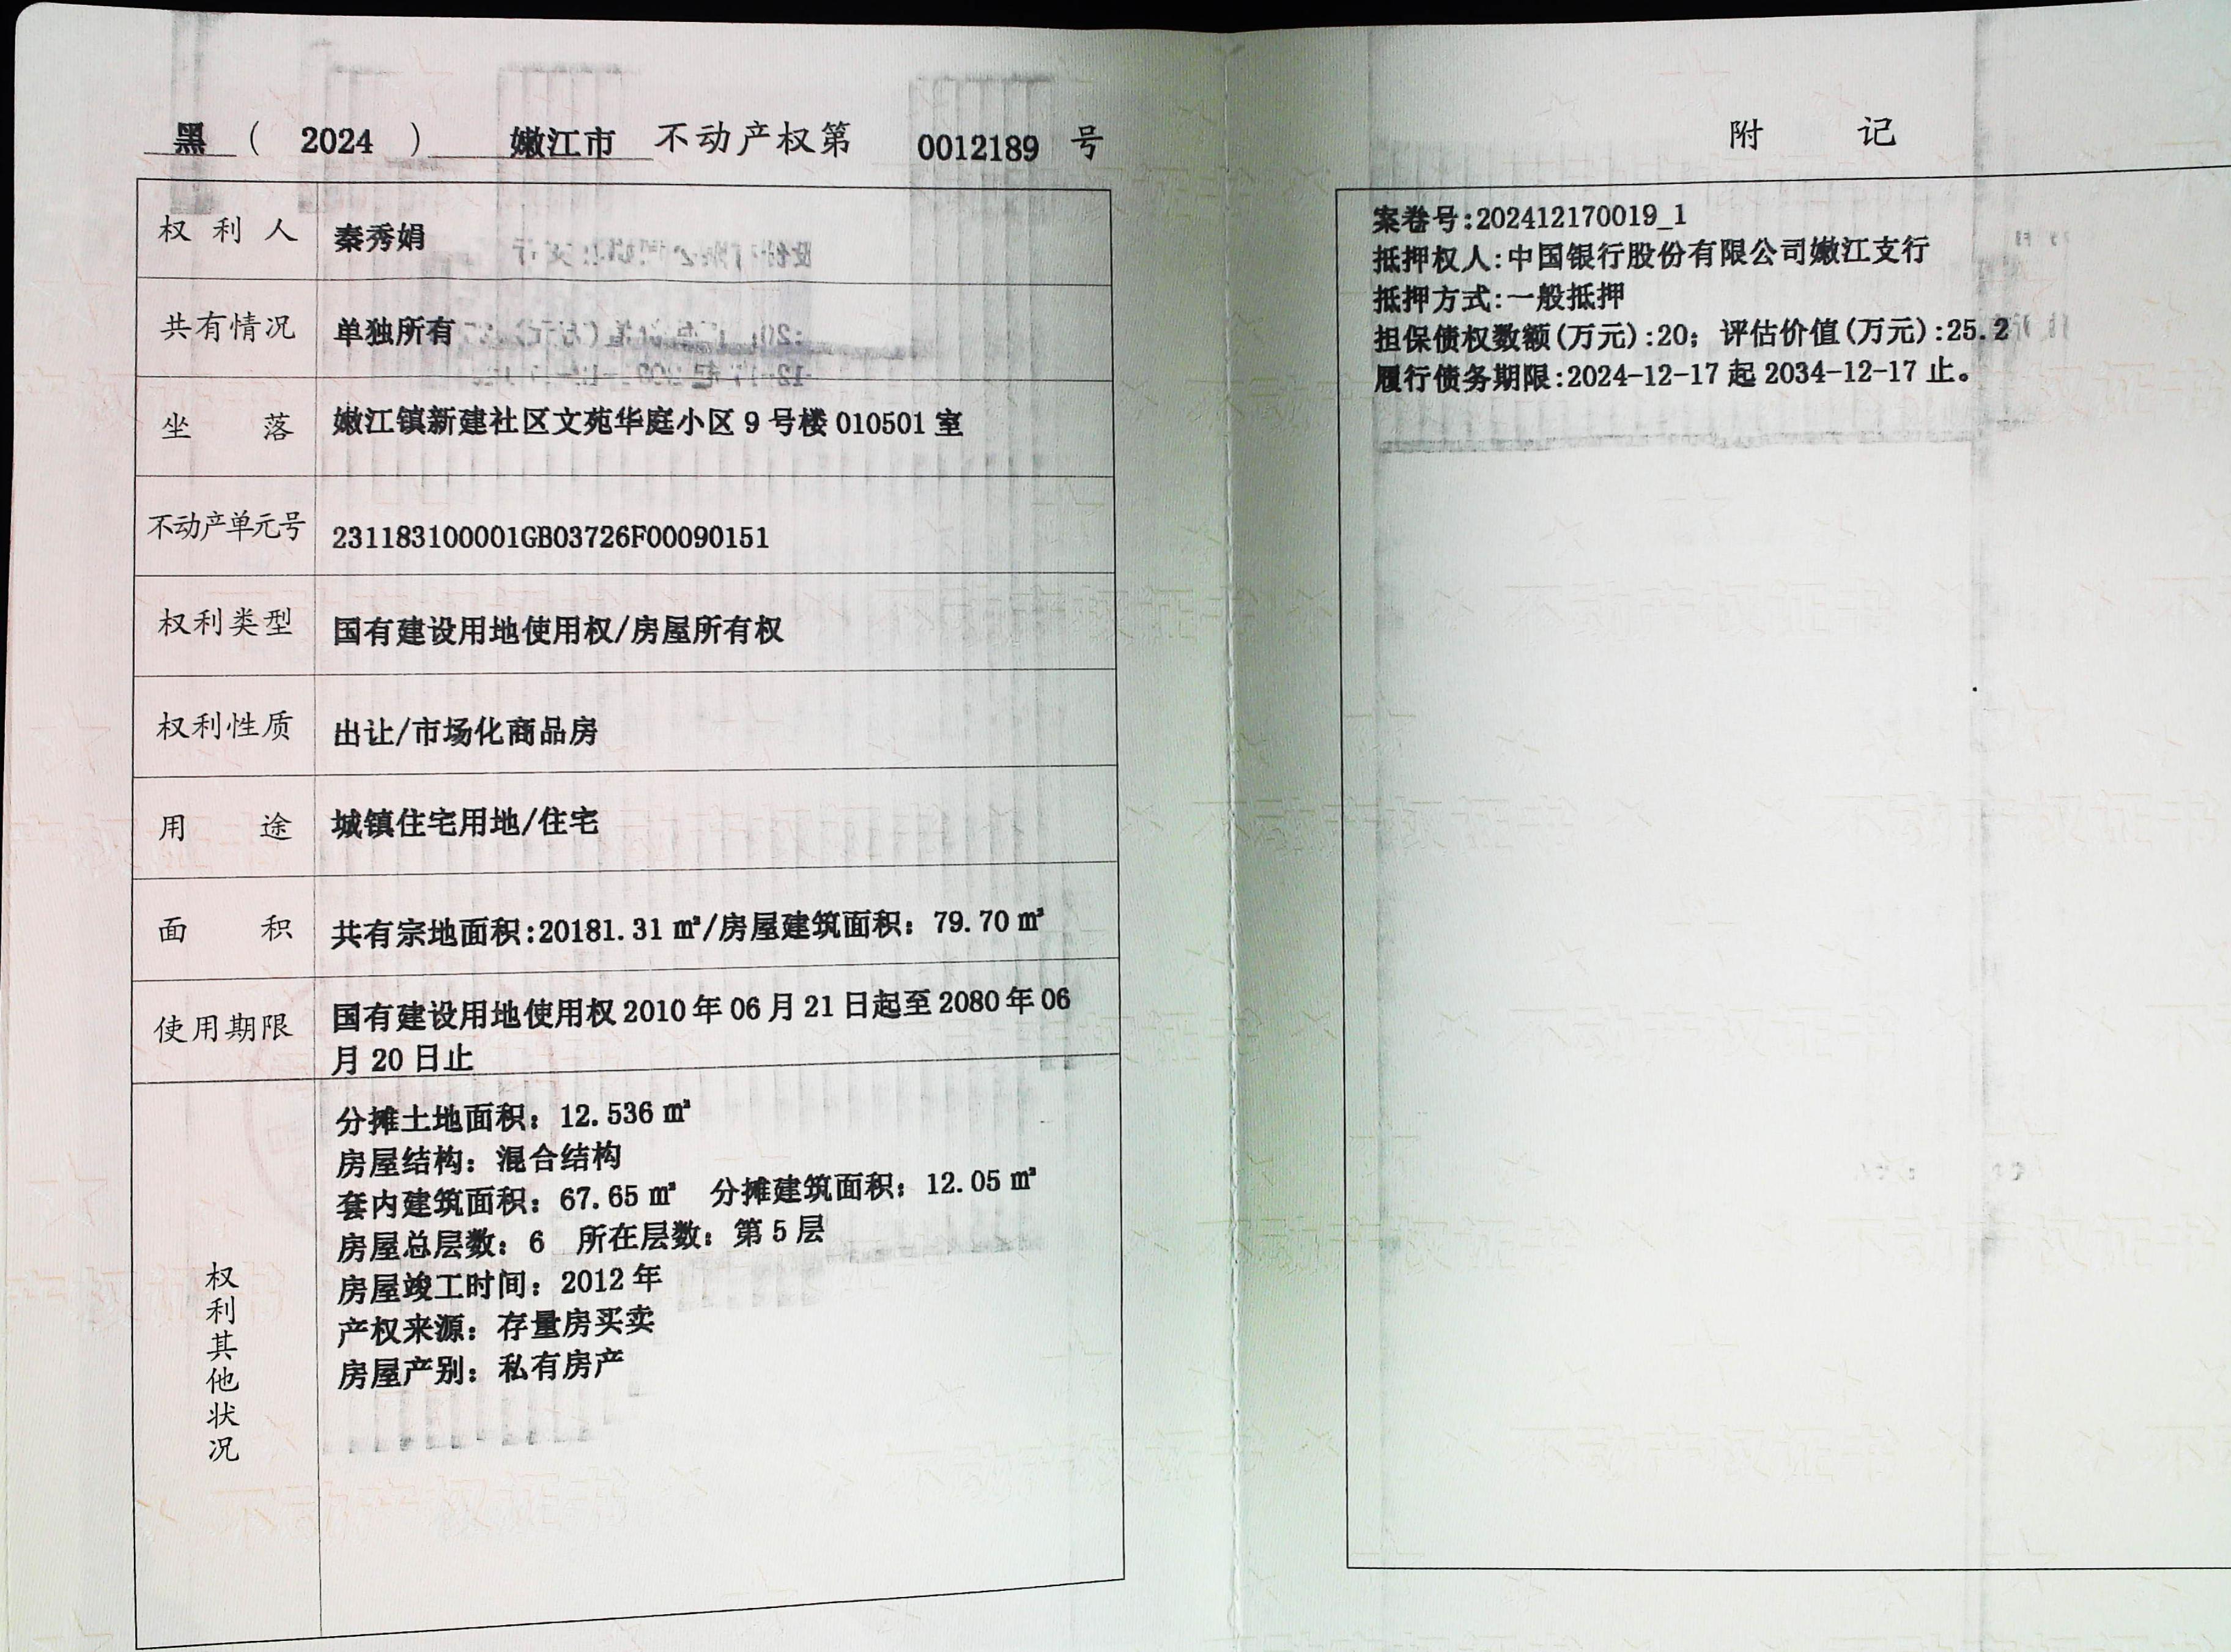 黑 ( 2024 ) 嫩江市 不动产权第 0012189 号
权利人 秦秀娟
共有情况 单独所有
坐落 嫩江镇新建社区文苑华庭小区 9 号楼 010501 室
不动产单元号 231183100001GB03726F00090151
权利类型 国有建设用地使用权/房屋所有权
权利性质 出让/市场化商品房
用途 城镇住宅用地/住宅
面积 共有宗地面积:20181.31 ㎡/房屋建筑面积：79.70 ㎡
使用期限 国有建设用地使用权 2010 年 06 月 21 日起至 2080 年 06
月 20 日止
权利其他状况
分摊土地面积：12.536 ㎡
房屋结构：混合结构
套内建筑面积：67.65 ㎡ 分摊建筑面积：12.05 ㎡
房屋总层数：6 所在层数：第 5 层
房屋竣工时间：2012 年
产权来源：存量房买卖
房屋产别：私有房产
附记
案卷号:202412170019_1
抵押权人:中国银行股份有限公司嫩江支行
抵押方式:一般抵押
担保债权数额(万元):20；评估价值(万元):25.2
履行债务期限:2024-12-17 起 2034-12-17 止。